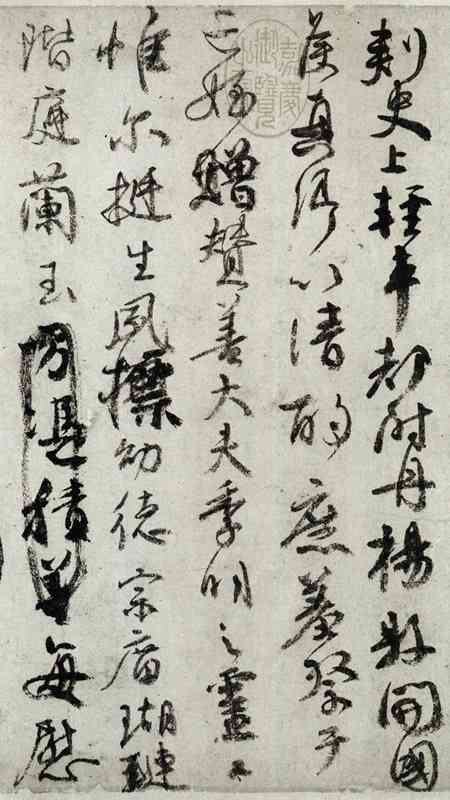 刺史上輕車都尉丹楊縣開國
侯真卿以清酌庶羞祭于
亡姪贈贊善大夫季明之靈曰
惟尔挺生夙標幼德宗廟瑚璉
階庭蘭玉方憑積善每慰
嘉慶御覽之寶